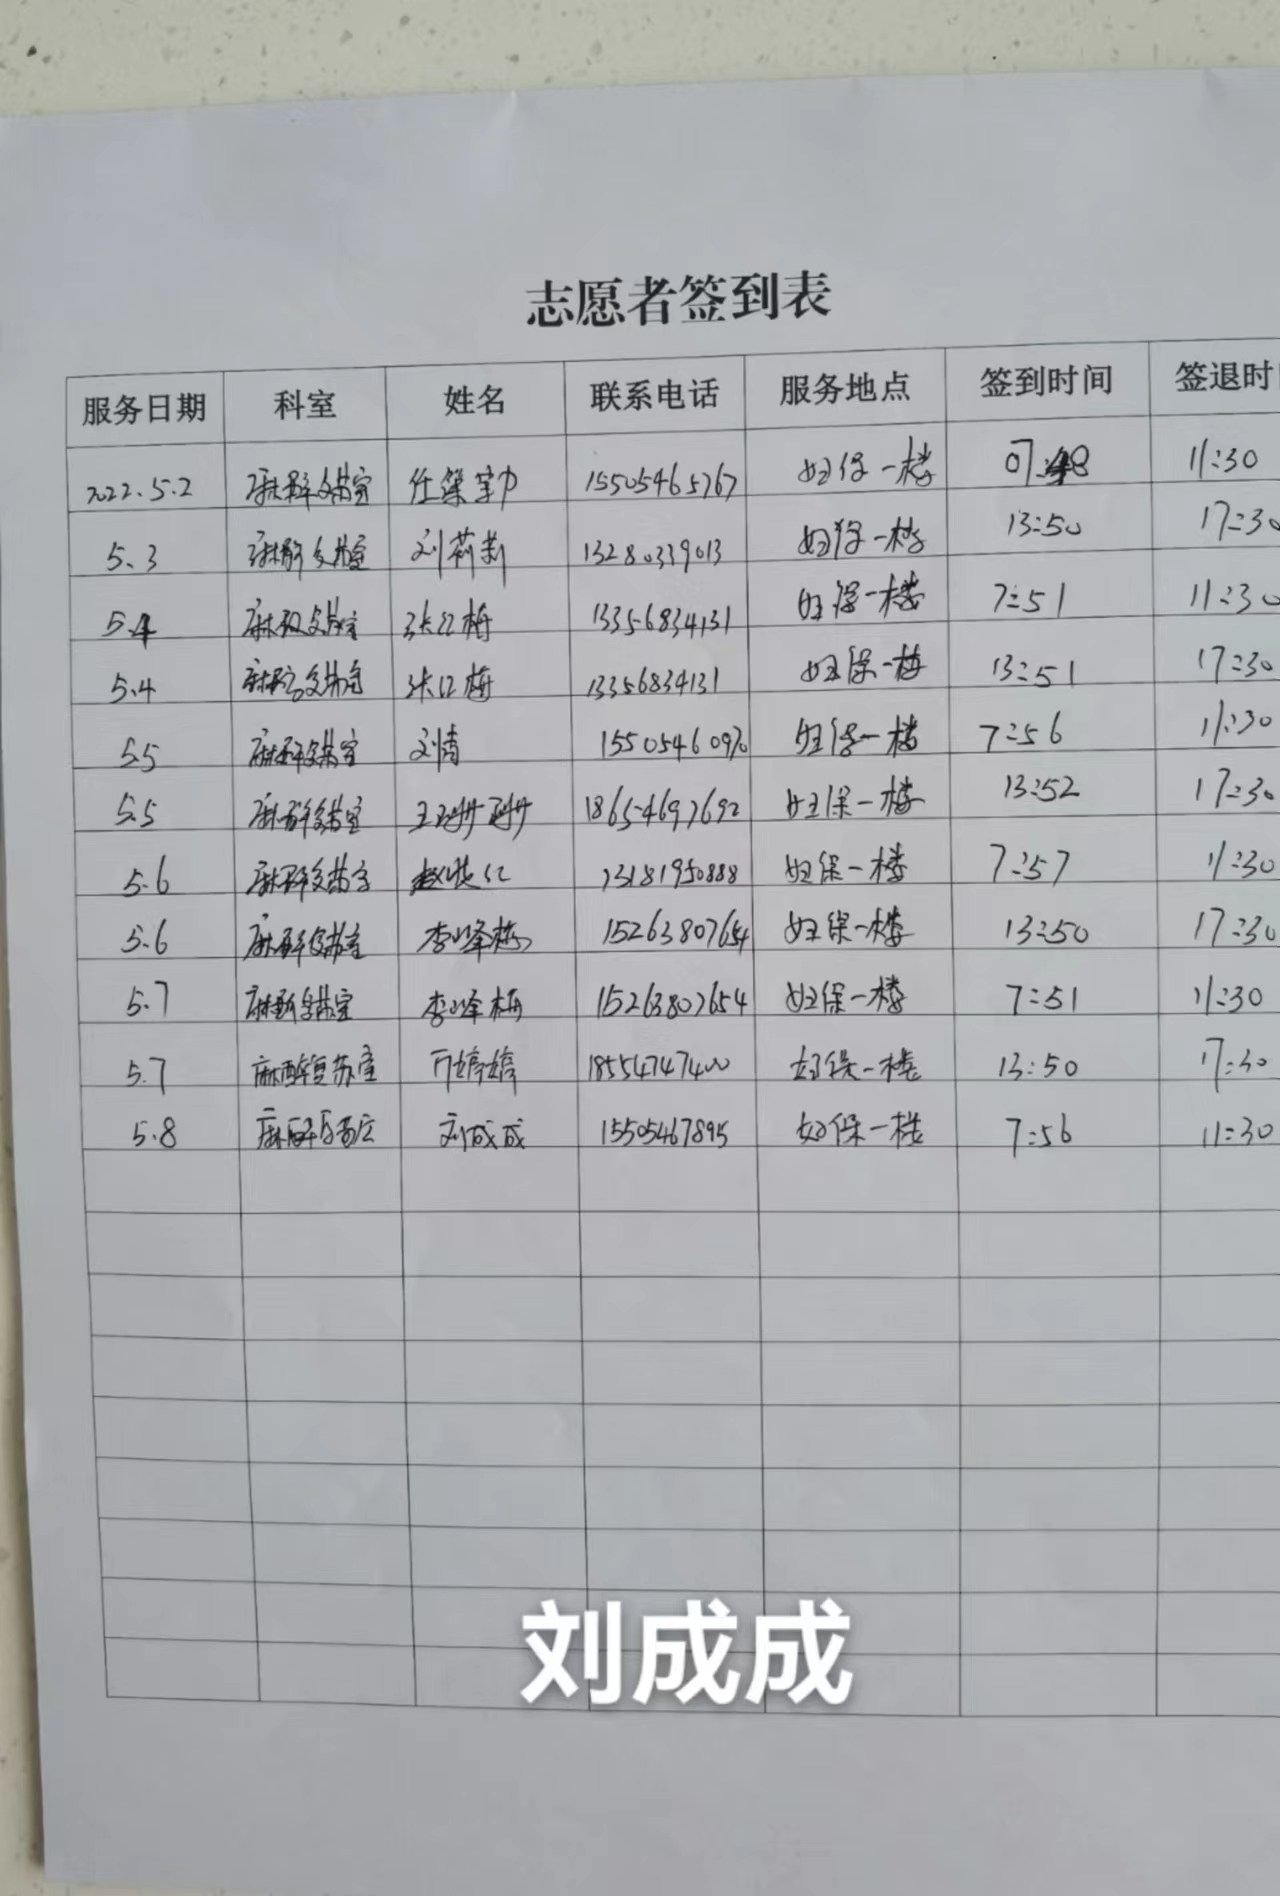 志愿者签到表
服务日期 科室 姓名 联系电话 服务地点 签到时间 签退时
2022.5.2 麻醉复苏室 任 15505465767 妇保一楼 07:48 11:30
5.3 麻醉复苏室 刘莉莉 13280339013 妇保一楼 13:50 17:30
5.4 麻醉复苏室 张红梅 13356834131 妇保一楼 7:51 11:30
5.4 麻醉复苏室 张红梅 13356834131 妇保一楼 13:51 17:30
5.5 麻醉复苏室 刘倩 妇保一楼 7:56 11:30
5.5 麻醉复苏室 王珊珊 18654697692 妇保一楼 13:52 17:30
5.6 麻醉复苏室 赵 13181950888 妇保一楼 7:57 11:30
5.6 麻醉复苏室 李峰梅 15263807654 妇保一楼 13:50 17:30
5.7 麻醉复苏室 李峰梅 15263807654 妇保一楼 7:51 11:30
5.7 麻醉复苏室 婷婷 18554747400 妇保一楼 13:50 17:30
5.8 麻醉 刘成成 15505467895 妇保一楼 7:56 11:30
刘成成